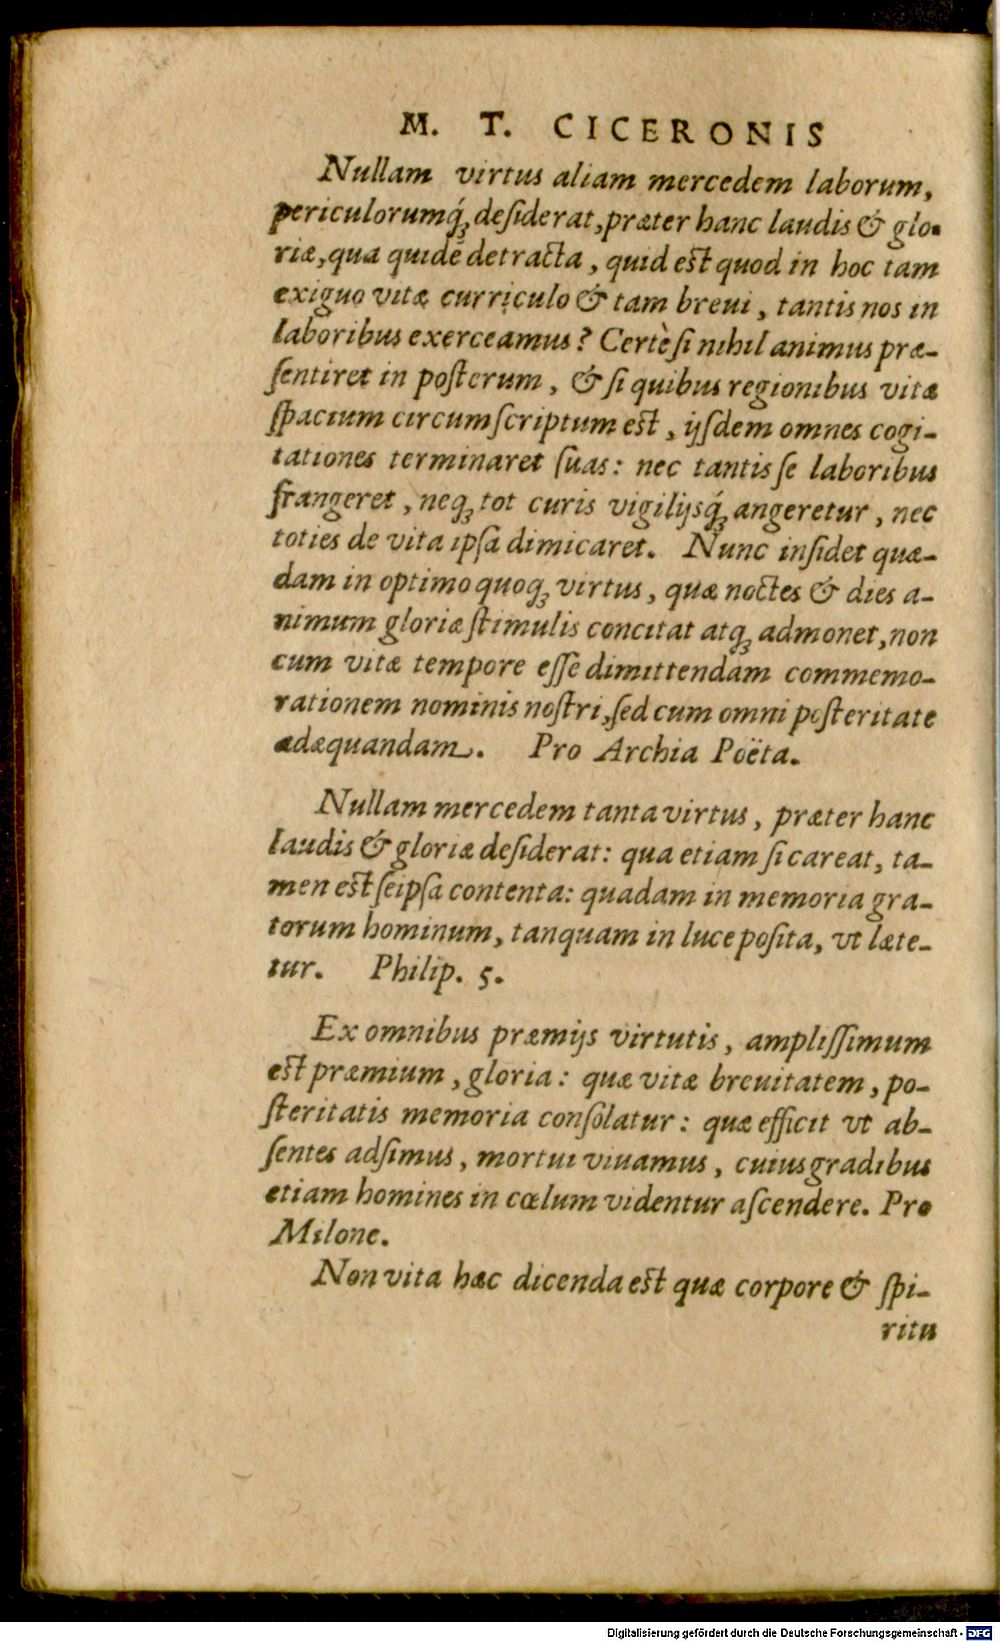 M. T. CICERONIS
Nullam virtus aliam mercedem laborum,
periculorumq́ꝫ deſiderat, præter hanc laudis & glo-
riæ, qua quidẽ detracta, quid eſt quod in hoc tam
exiguo vitæ curriculo & tam breui, tantis nos in
laboribus exerceamus? Certè ſi nihil animus præ-
ſentiret in poſterum, & ſi quibus regionibus vitæ
ſpacium circumſcriptum eſt, ijſdem omnes cogi-
tationes terminaret ſuas: nec tantis ſe laboribus
frangeret, neqꝫ tot curis vigilijsq́ꝫ angeretur, nec
toties de vita ipſa dimicaret. Nunc inſidet quæ-
dam in optimo quoqꝫ virtus, quæ noctes & dies a-
nimum gloriæ ſtimulis concitat atqꝫ admonet, non
cum vitæ tempore eſſe dimittendam commemo-
rationem nominis noſtri, ſed cum omni poſteritate
adæquandam. Pro Archia Poëta.
Nullam mercedem tanta virtus, præter hanc
laudis & gloriæ deſiderat: qua etiam ſi careat, ta-
men eſt ſeipſa contenta: quadam in memoria gra-
torum hominum, tanquam in luce poſita, vt læte-
tur. Philip. 5.
Ex omnibus præmijs virtutis, ampliſſimum
eſt præmium, gloria: quæ vitæ breuitatem, po-
ſteritatis memoria conſolatur: quæ efficit vt ab-
ſentes adſimus, mortui viuamus, cuius gradibus
etiam homines in cœlum videntur aſcendere. Pro
Milone.
Non vita hæc dicenda eſt quæ corpore & ſpi-
ritu
Digitalisierung gefördert durch die Deutsche Forschungsgemeinschaft - DFG